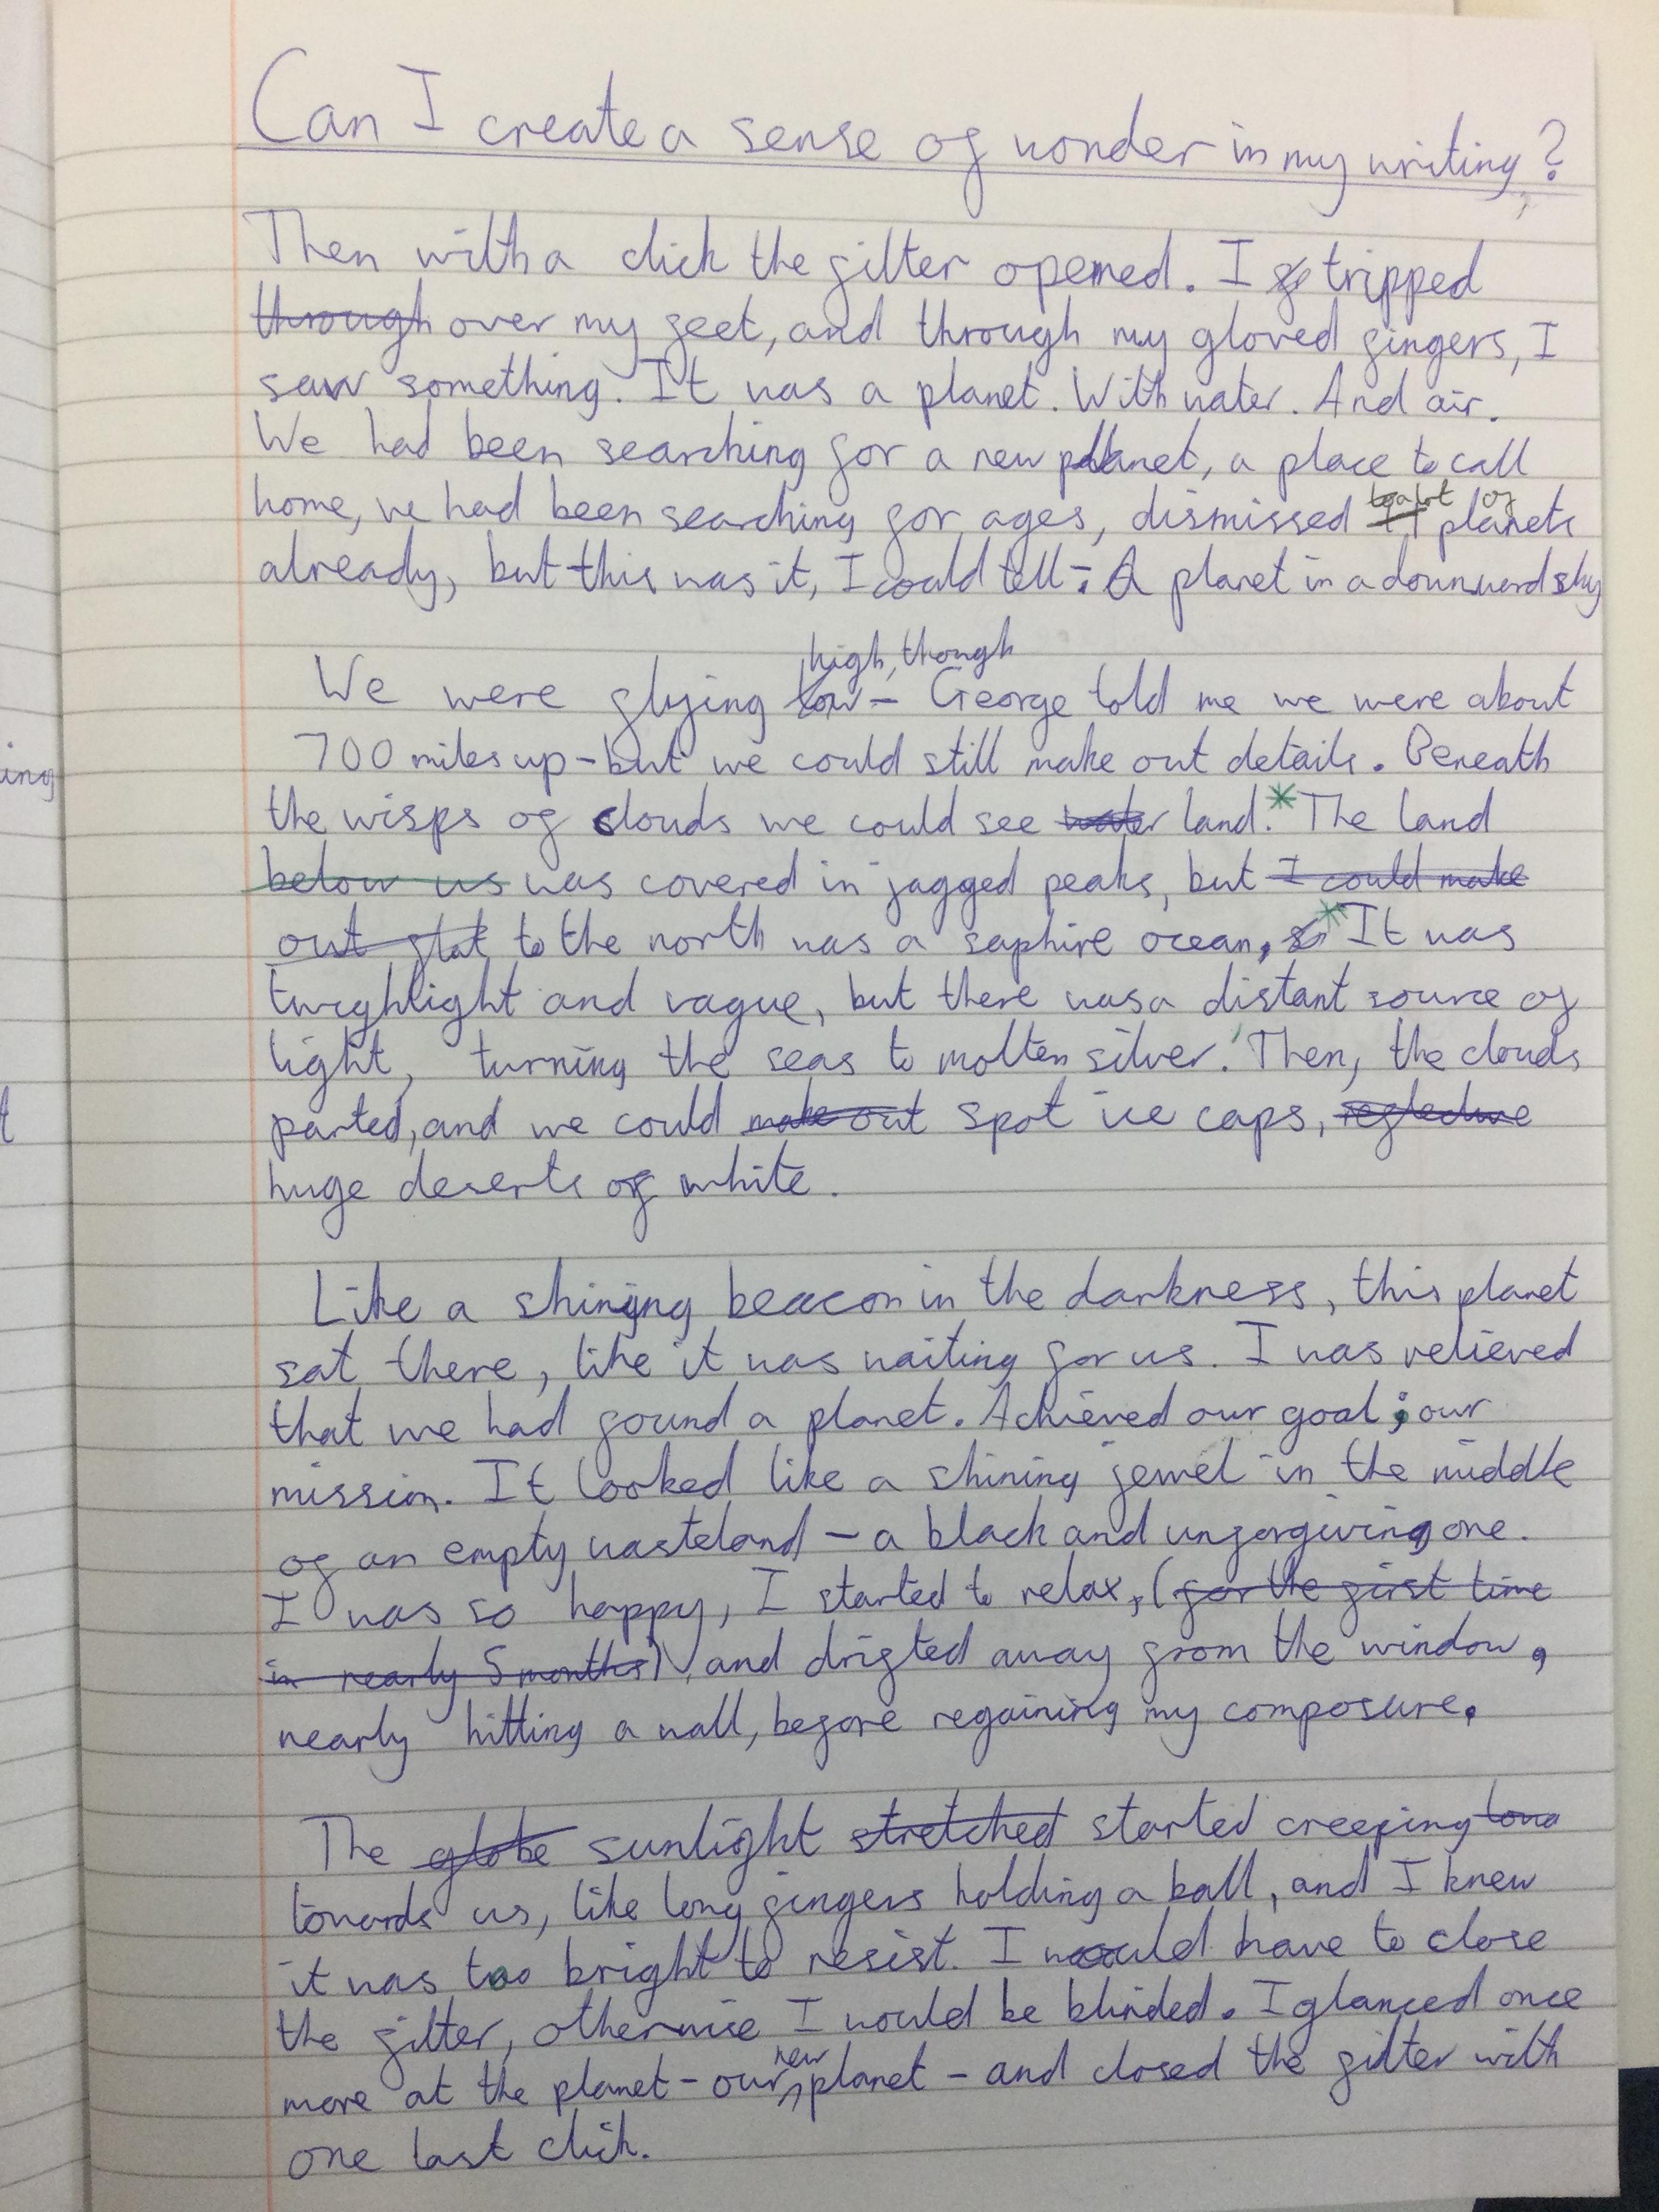 Can I create a sense of wonder in my writing?
Then with a click the filter opened. I tripped
through over my feet, and through my gloved fingers, I
saw something. It was a planet. With water. And air.
We had been searching for a new planet, a place to call
home, we had been searching for ages, dismissed a lot of planets
already, but this was it, I could tell: A planet in a downward sky
high, though
We were flying low - George told me we were about
700 miles up - but we could still make out details. Beneath
the wisps of clouds we could see water land.* The land
below us was covered in jagged peaks, but I could make
out flat to the north was a saphire ocean, * It was
twighlight and vague, but there was a distant source of
light, turning the seas to molten silver. Then, the clouds
parted, and we could make out spot ice caps,
huge deserts of white.
Like a shining beacon in the darkness, this planet
sat there, like it was waiting for us. I was relieved
that we had found a planet. Achieved our goal; our
mission. It looked like a shining jewel in the middle
of an empty wasteland - a black and unforgiving one.
I was so happy, I started to relax, (for the first time
in nearly 5 months) and drifted away from the window,
nearly hitting a wall, before regaining my composure.
The globe sunlight stretched started creeping
towards us, like long fingers holding a ball, and I knew
it was too bright to resist. I would have to close
the filter, otherwise I would be blinded. I glanced once
new
more at the planet - our planet - and closed the filter with
one last click.
ing
t